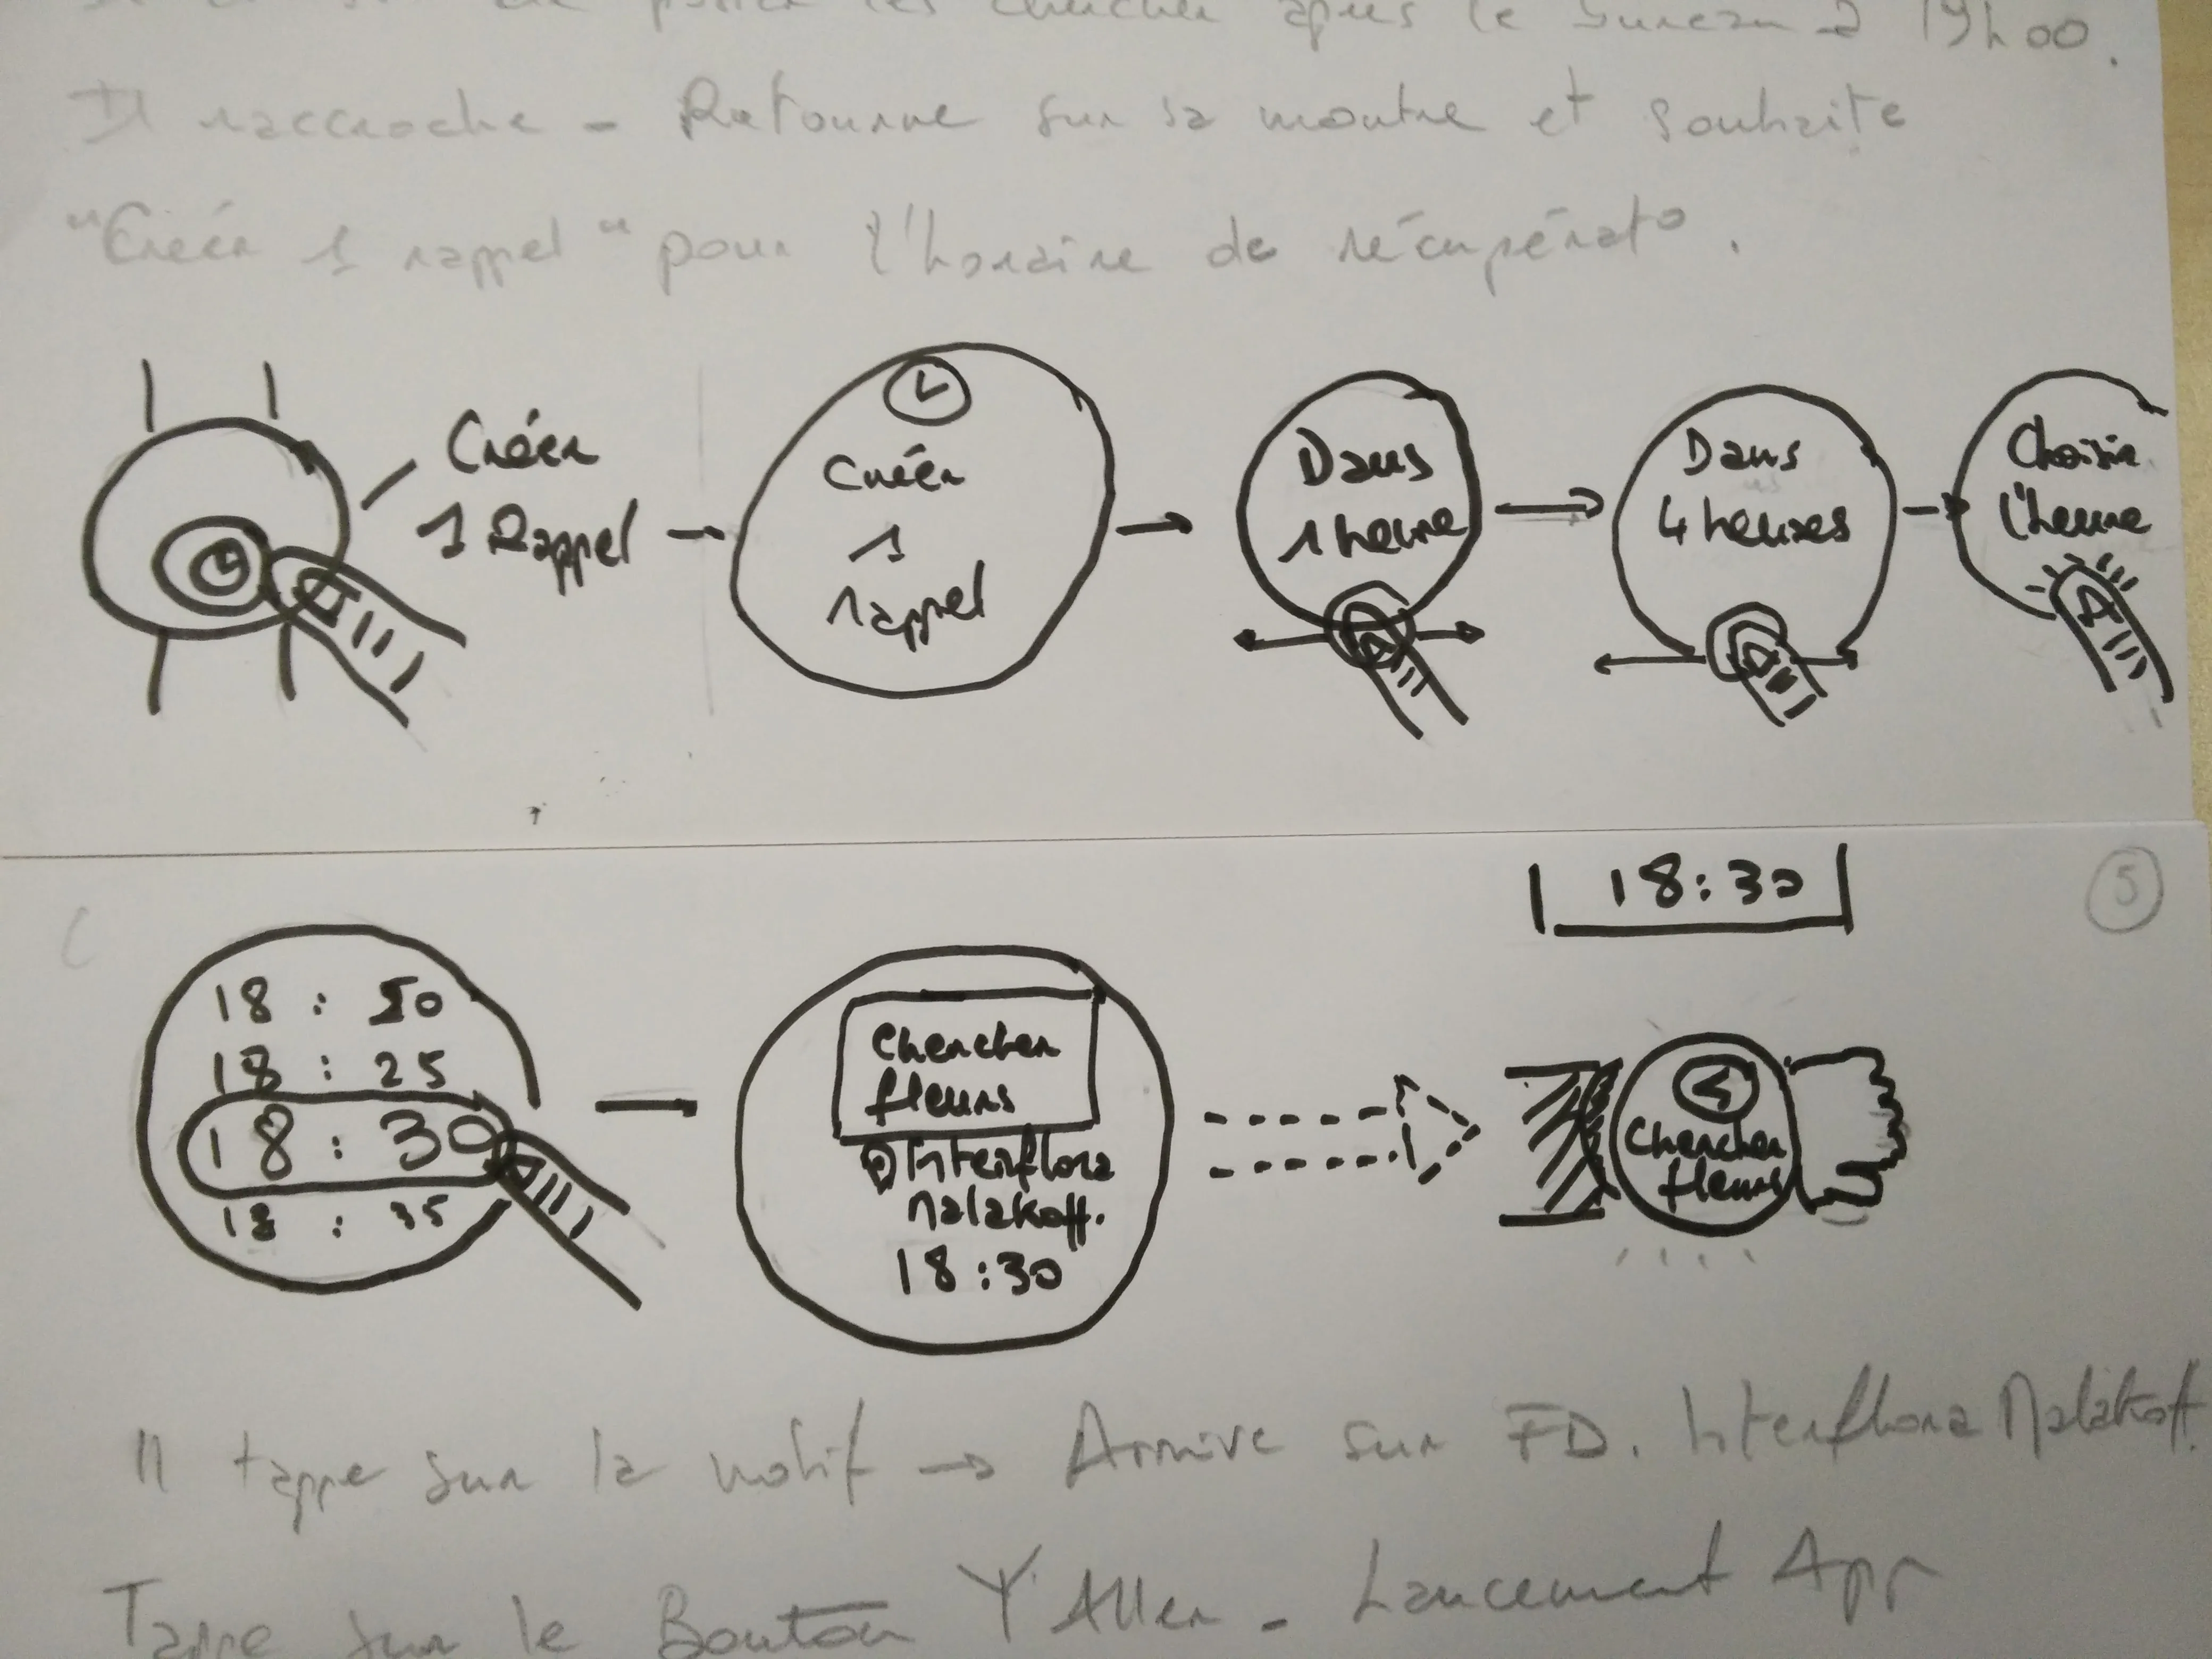 les chercher après le bureau à 19h00.
Il raccroche - Retourne sur sa montre et souhaite
"Créér 1 rappel" pour l'horaire de récupérat°.
Créer
1 Rappel
Créér
1
rappel
Dans
1 heure
Dans
4 heures
Choisir
l'heure
5
18:30
18 : 20
18 : 25
18 : 30
18 : 35
Chercher
fleurs
Interflora
Malakoff.
18:30
Chercher
fleurs
Il tappe sur la notif → Arrive sur FD. Interflora Malakoff.
Tappe sur le Bouton Y Aller - Lancement App